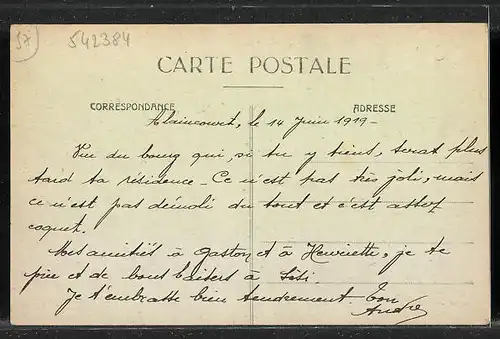 57
542384
CARTE POSTALE
CORRESPONDANCE
ADRESSE
Alaincourt, le 14 Juin 1919 -
Vue du bourg qui, si tu y tiens, serat plus
tard ta résidence - Ce n'est pas très joli, mais
ce n'est pas démoli du tout et c'est assez
coquet.
Mes amitiés à Gaston et à Henriette, je te
prie et de bons baisers à Zézi.
Je t'embrasse bien tendrement Ton
André